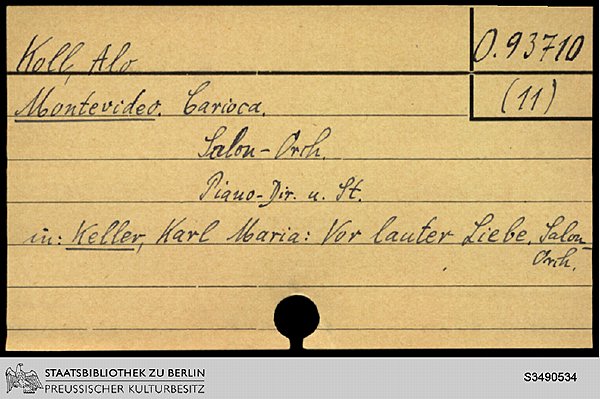 Koll, Alo
O.93710
(11)
Montevideo. Carioca.
Salon-Orch.
Piano-Dir. u. St.
in: Keller, Karl Maria: Vor lauter Liebe. Salon-
Orch.
STAATSBIBLIOTHEK ZU BERLIN
PREUSSISCHER KULTURBESITZ
S3490534